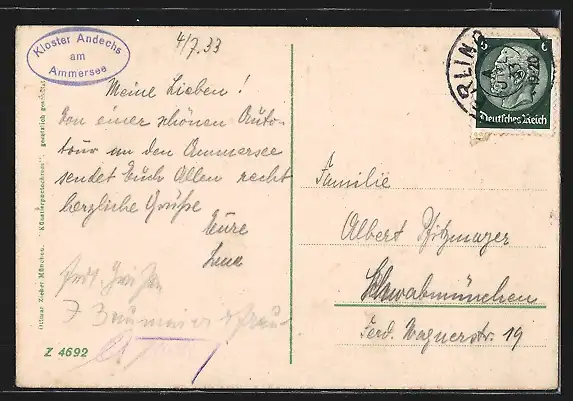 Kloster Andechs
am
Ammersee
4/7.33
Meine Lieben!
Von einer schönen Auto-
tour an den Ammersee
sendet Euch Allen recht
herzliche Grüße
Eure
Z 4692
Ottmar Zieher München. "Künstlerpostkarten" gesetzlich geschützt
6 6
Deutsches Reich
Familie
Albert Pfitzmayer
Schwabmünchen
Ferd. Wagnerstr. 19